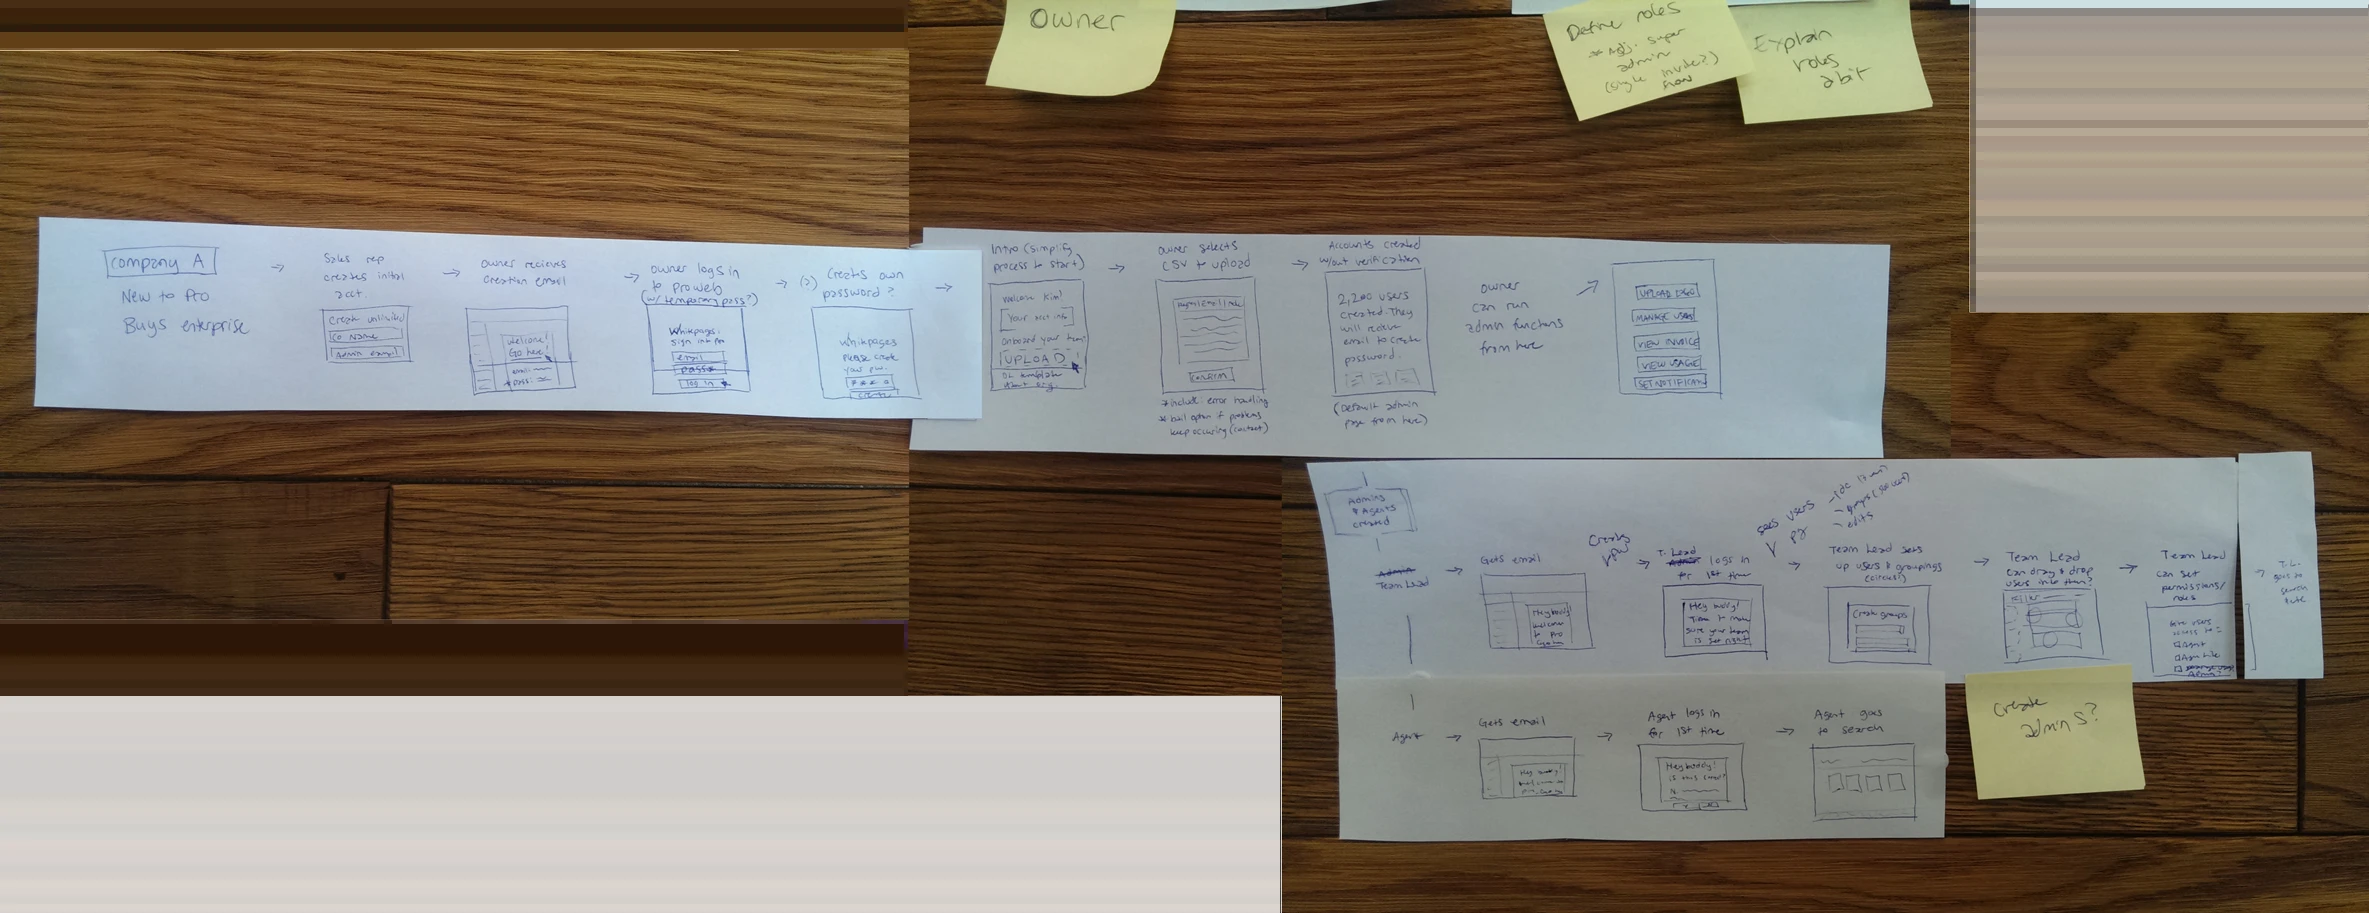 Owner
Define roles
* Adj. super
admin
(single invite?)
Explain
roles
a bit
Company A
New to Pro
Buys enterprise
Sales rep
creates initial
acct.
Create unlimited
Co Name
Admin email
Owner recieves
creation email
Welcome!
Go here!
email:
* pass:
Owner logs in
to Pro web
(w/ temporary pass?)
Whitepages.
Sign into Pro
email
pass
log in
(2) Creates own
password?
Whitepages
Please create
your pw.
create
Intro (simplify
process to start)
Welcome Kim!
Your acct info
Onboard your team:
UPLOAD
DL template
Owner selects
CSV to upload
CONFIRM
* include: error handling
* bail option if problems
keep occuring (contact)
Accounts created
w/out verification
2,200 users
created. They
will recieve
email to create
password.
(Default admin
page from here)
Owner
can run
admin functions
from here
UPLOAD LOGO
MANAGE USERS
VIEW INVOICE
VIEW USAGE
SET NOTIFICAN
Admins
& Agents
created
Admin
Team Lead
Gets email
Hey buddy!
Welcome
to Pro
Creates
pw
T. Lead
Admin logs in
for 1st time
Hey buddy!
Time to make
sure your team
is set right
sees users
pg
- edits
Team Lead sets
up users & groupings
(circles!)
Create groups
Team Lead
can drag & drop
users into them?
Team Lead
can set
permissions/
roles
Give users
access to:
Agent
T.L.
goes to
search
Agent
Gets email
Hey buddy!
Agent logs in
for 1st time
Hey buddy!
Agent goes
to search
Create
admins?